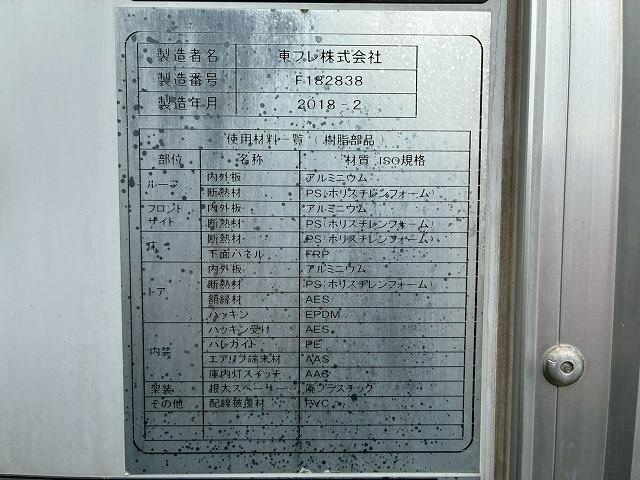 製造者名 東プレ株式会社
製造番号 F182838
製造年月 2018-2
使用材料一覧(樹脂部品)
部位 名称 材質 ISO規格
ルーフ 内外板 アルミニウム
断熱材 PS(ポリスチレンフォーム)
フロント サイド 内外板 アルミニウム
断熱材 PS(ポリスチレンフォーム)
床 断熱材 PS(ポリスチレンフォーム)
下面パネル FRP
ドア 内外板 アルミニウム
断熱材 PS(ポリスチレンフォーム)
額縁材 AES
パッキン EPDM
内装 パッキン受け AES
パレガイド PE
エアリブ端末材 AAS
庫内灯スイッチ AAS
架装 根太スペーサー 廃プラスチック
その他 配線被覆材 PVC